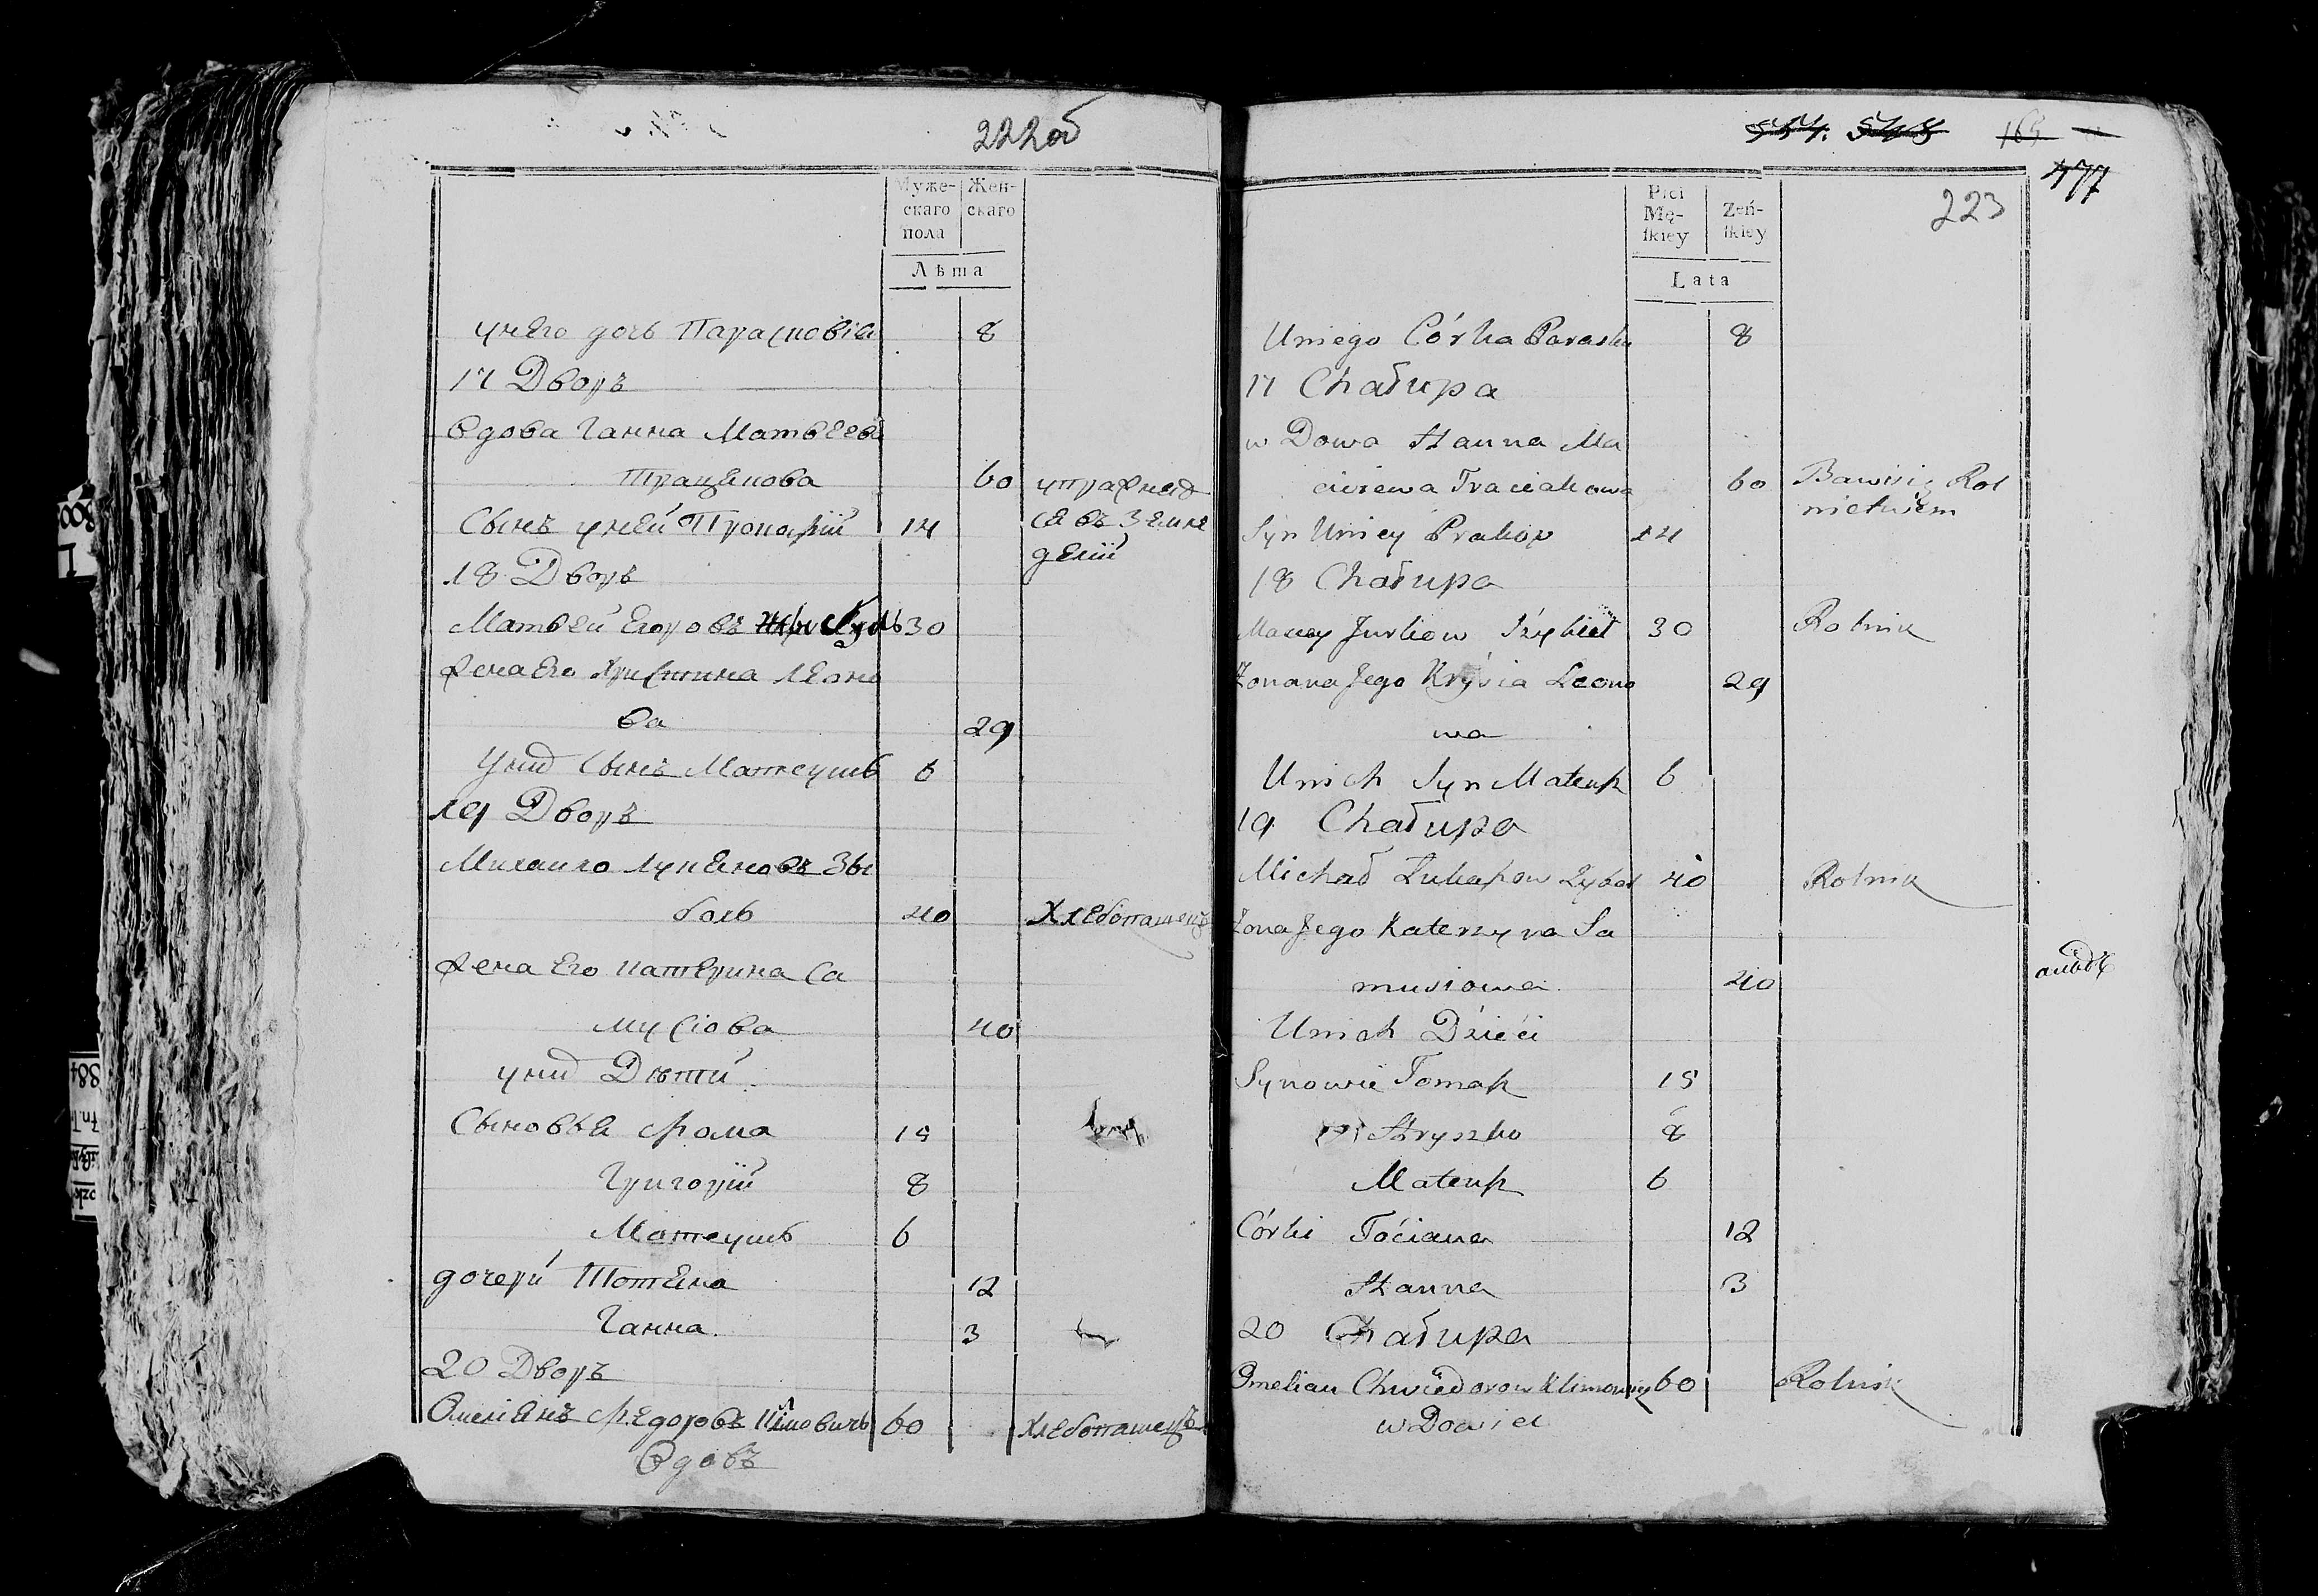 222об
Муже-
скаго
пола
Жен-
скаго
Лѣта
унего дочь Парасковіа 8
17 Дворъ
Вдова Ганна Матвеева
Тращенова 60 упражняѣ
Сынъ уней Прокарій 14 се въ Земле
18 Дворъ делій
Матвей Егоровъ 30
Жена Его Христина Леоно
ва 29
Уних Сынъ Матеушъ 6
19 Дворъ
Михаило Лукяновъ Зы
боль 40 Хлебопашецъ
Жена Его Катерина Са
мусіова 40
уних Дѣти
Сыновья Фома 15
Григорій 8
Матеушъ 6
дочери Татяна 12
Ганна 3
20 Дворъ
Омеліянъ Федоровъ Климовичъ 60 Хлебопашецъ
Вдовъ
165
477
223
Płci
Mę-
ſkiey
Zeń-
ſkiey
Lata
Uniego Córka Paraska 8
17 Chałupa
w Dowa Hanna Ma
cieiewa Traciakowa 60 Bawisię Rol
nictwem
Syn Uniey Prakop 14
18 Chałupa
Maciey Jurkow 30 Rolnik
Zonana Jego Krysia Leono 29
wa
Unich Syn Mateusz 6
19 Chałupa
Michał Łukaszow Zybal 40 Rolnik
Zona Jego Katerzyna Sa
musiowa 40
Unich Dzieci
Synowie Tomasz 15
Hryszko 8
Mateusz 6
Córki Taciana 12
Hanna 3
20 Chałupa
Omelian Chwiedorow Klimowicz 60 Rolnik
wDowiec